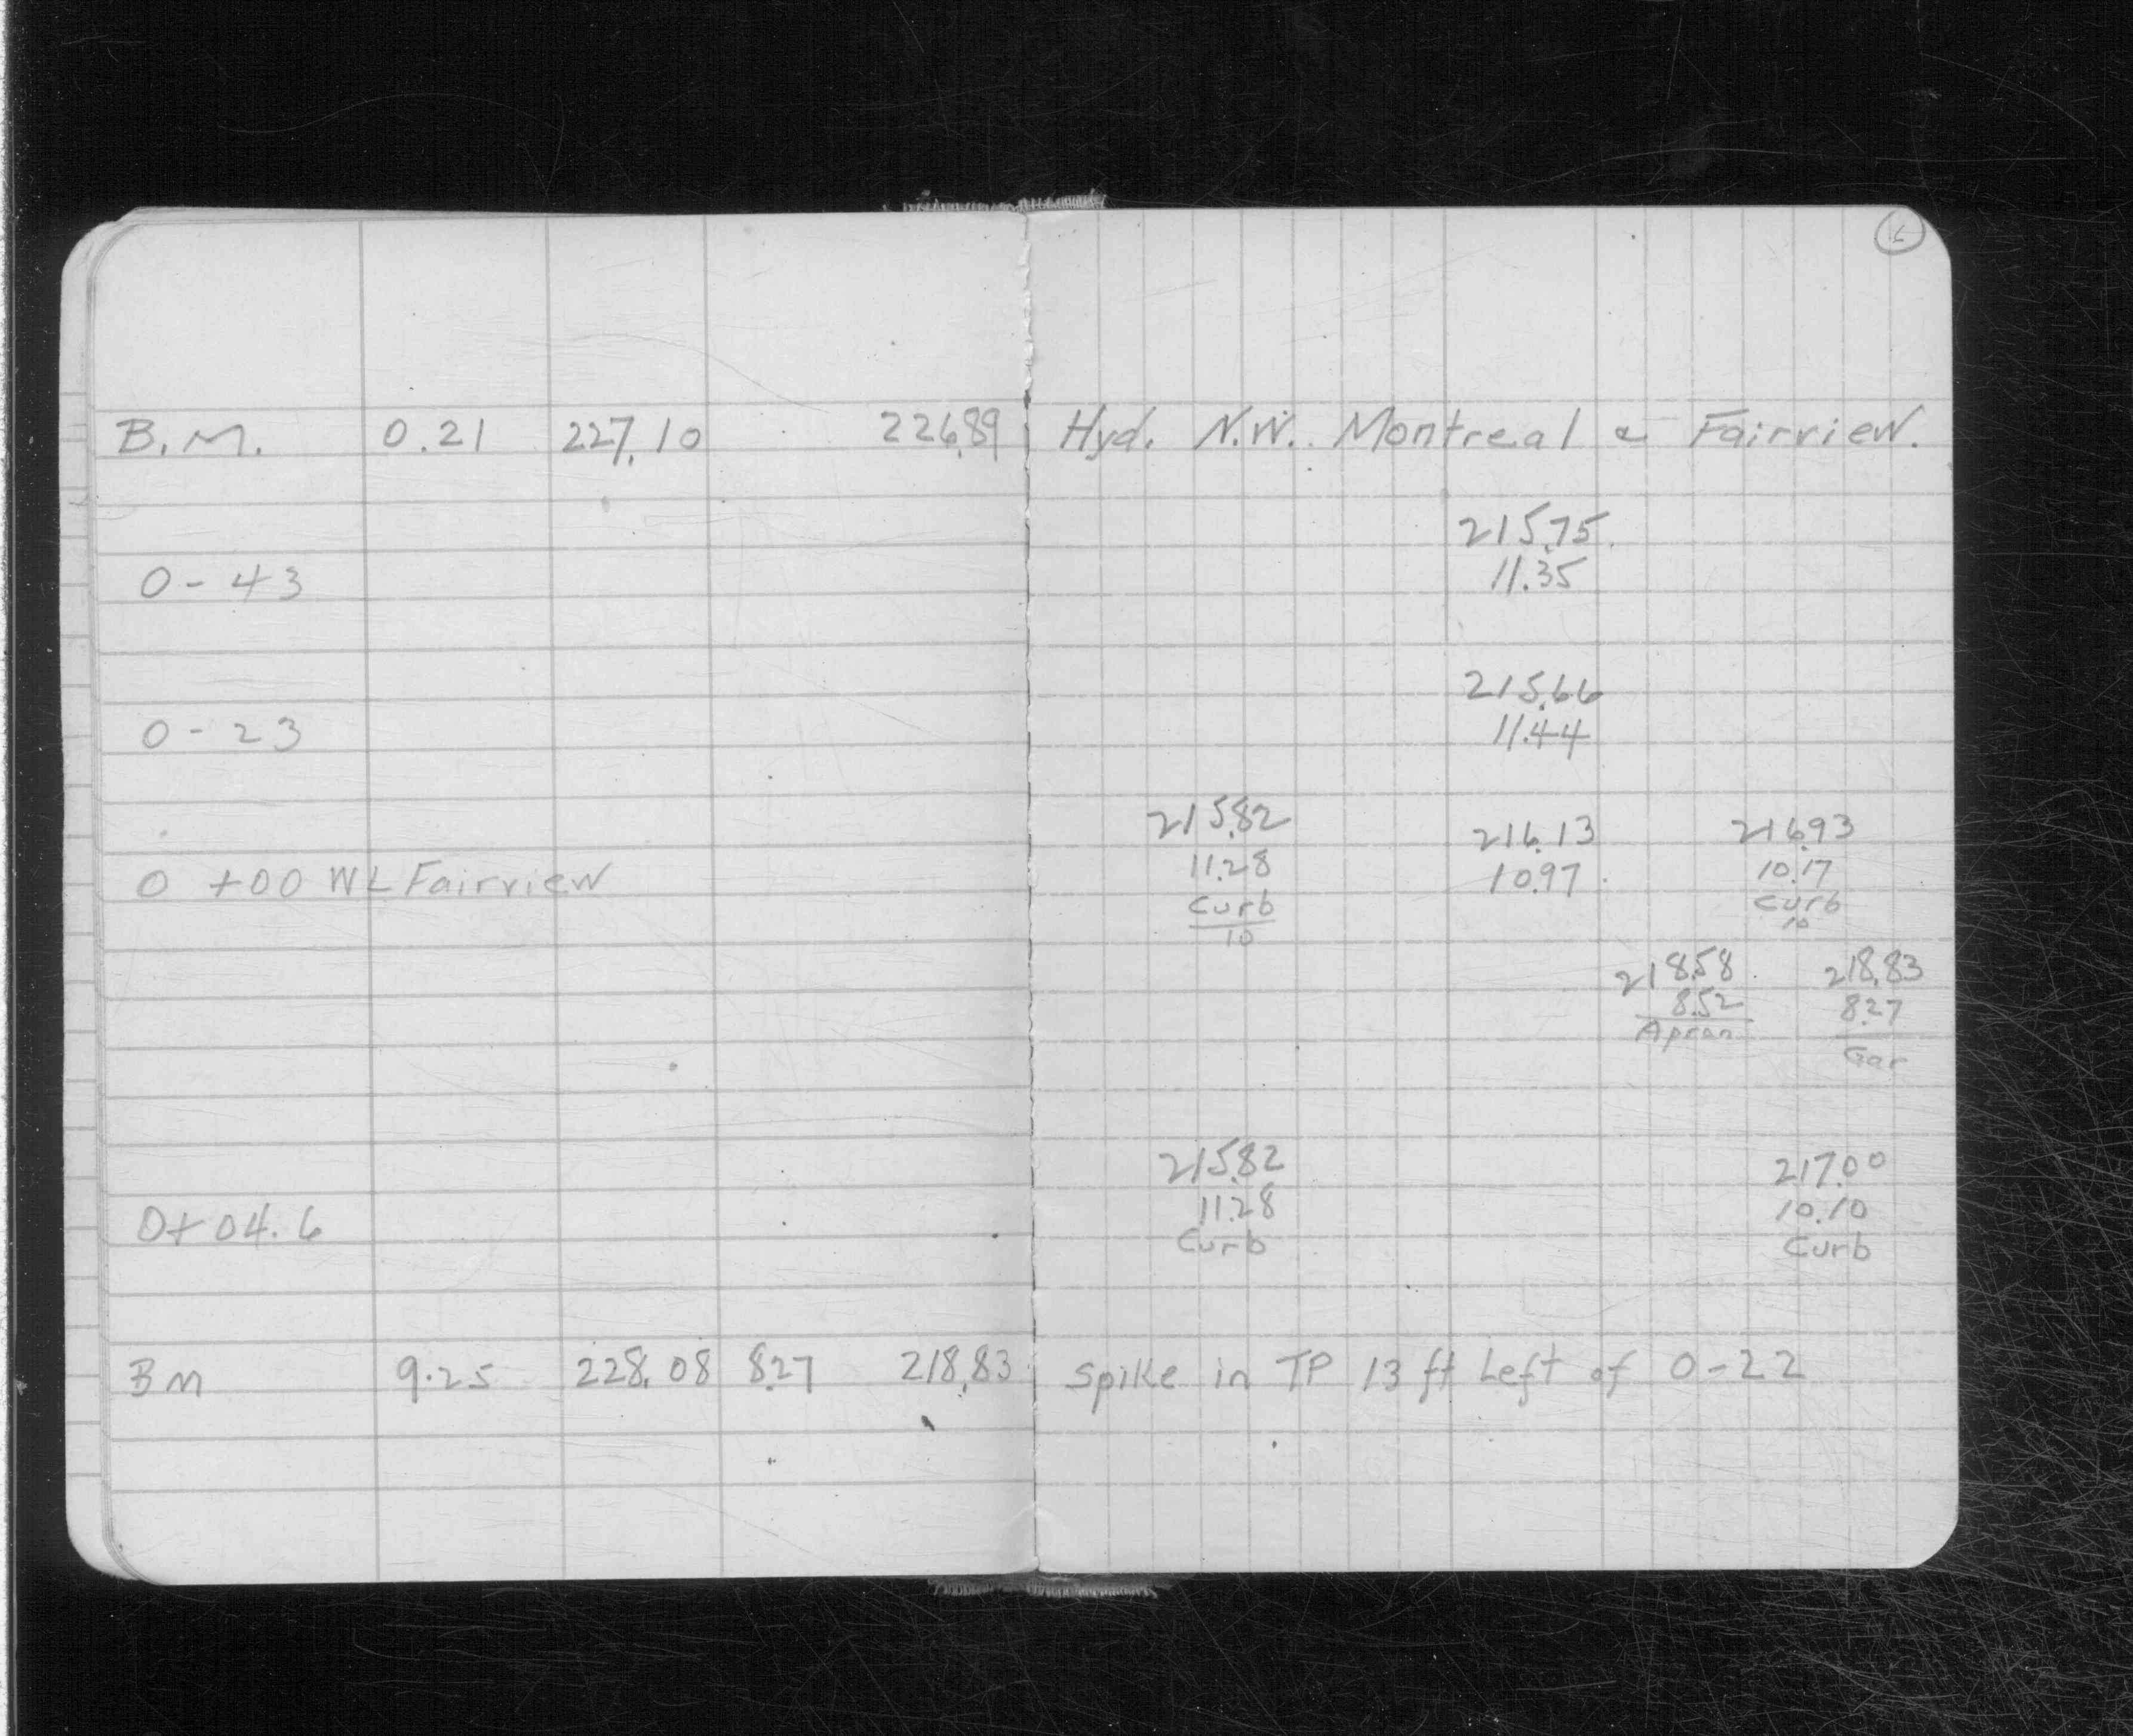 B.M. 0.21 227.10 226.89 Hyd. N.W. Montreal & Fairview.
215.75
0-43 11.35
215.66
0-23 11.44
215.82 216.13 216.93
0+00 WL Fairview 11.28 10.97 10.17
Curb Curb
10 10
218.58 218.83
8.52 8.27
Apron Gar
215.82 217.00
0+04.6 11.28 10.10
Curb Curb
BM 9.25 228.08 8.27 218.83 Spike in TP 13 ft Left of 0-22